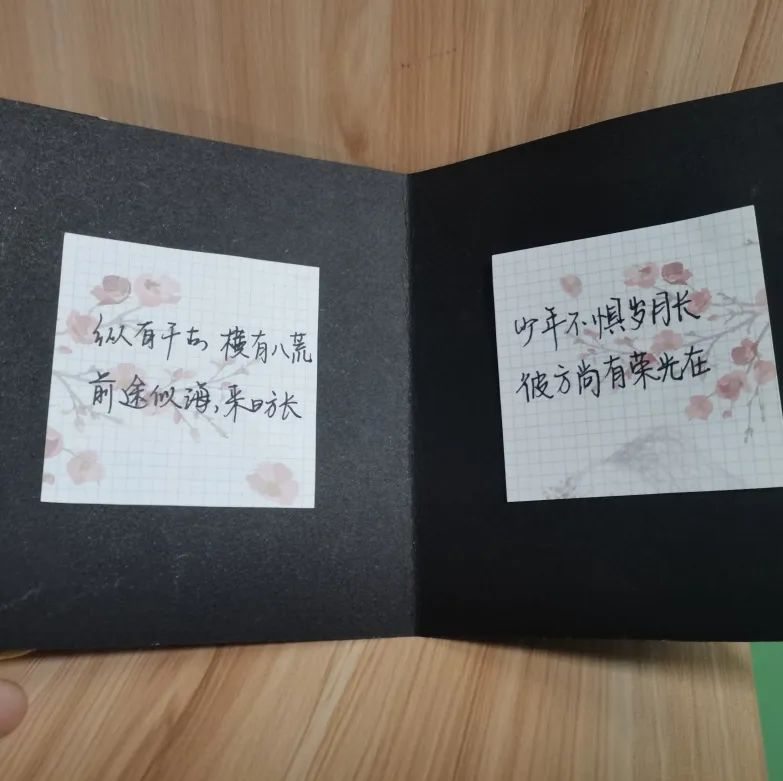 纵有千古 横有八荒
前途似海,来日方长
少年不惧岁月长
彼方尚有荣光在